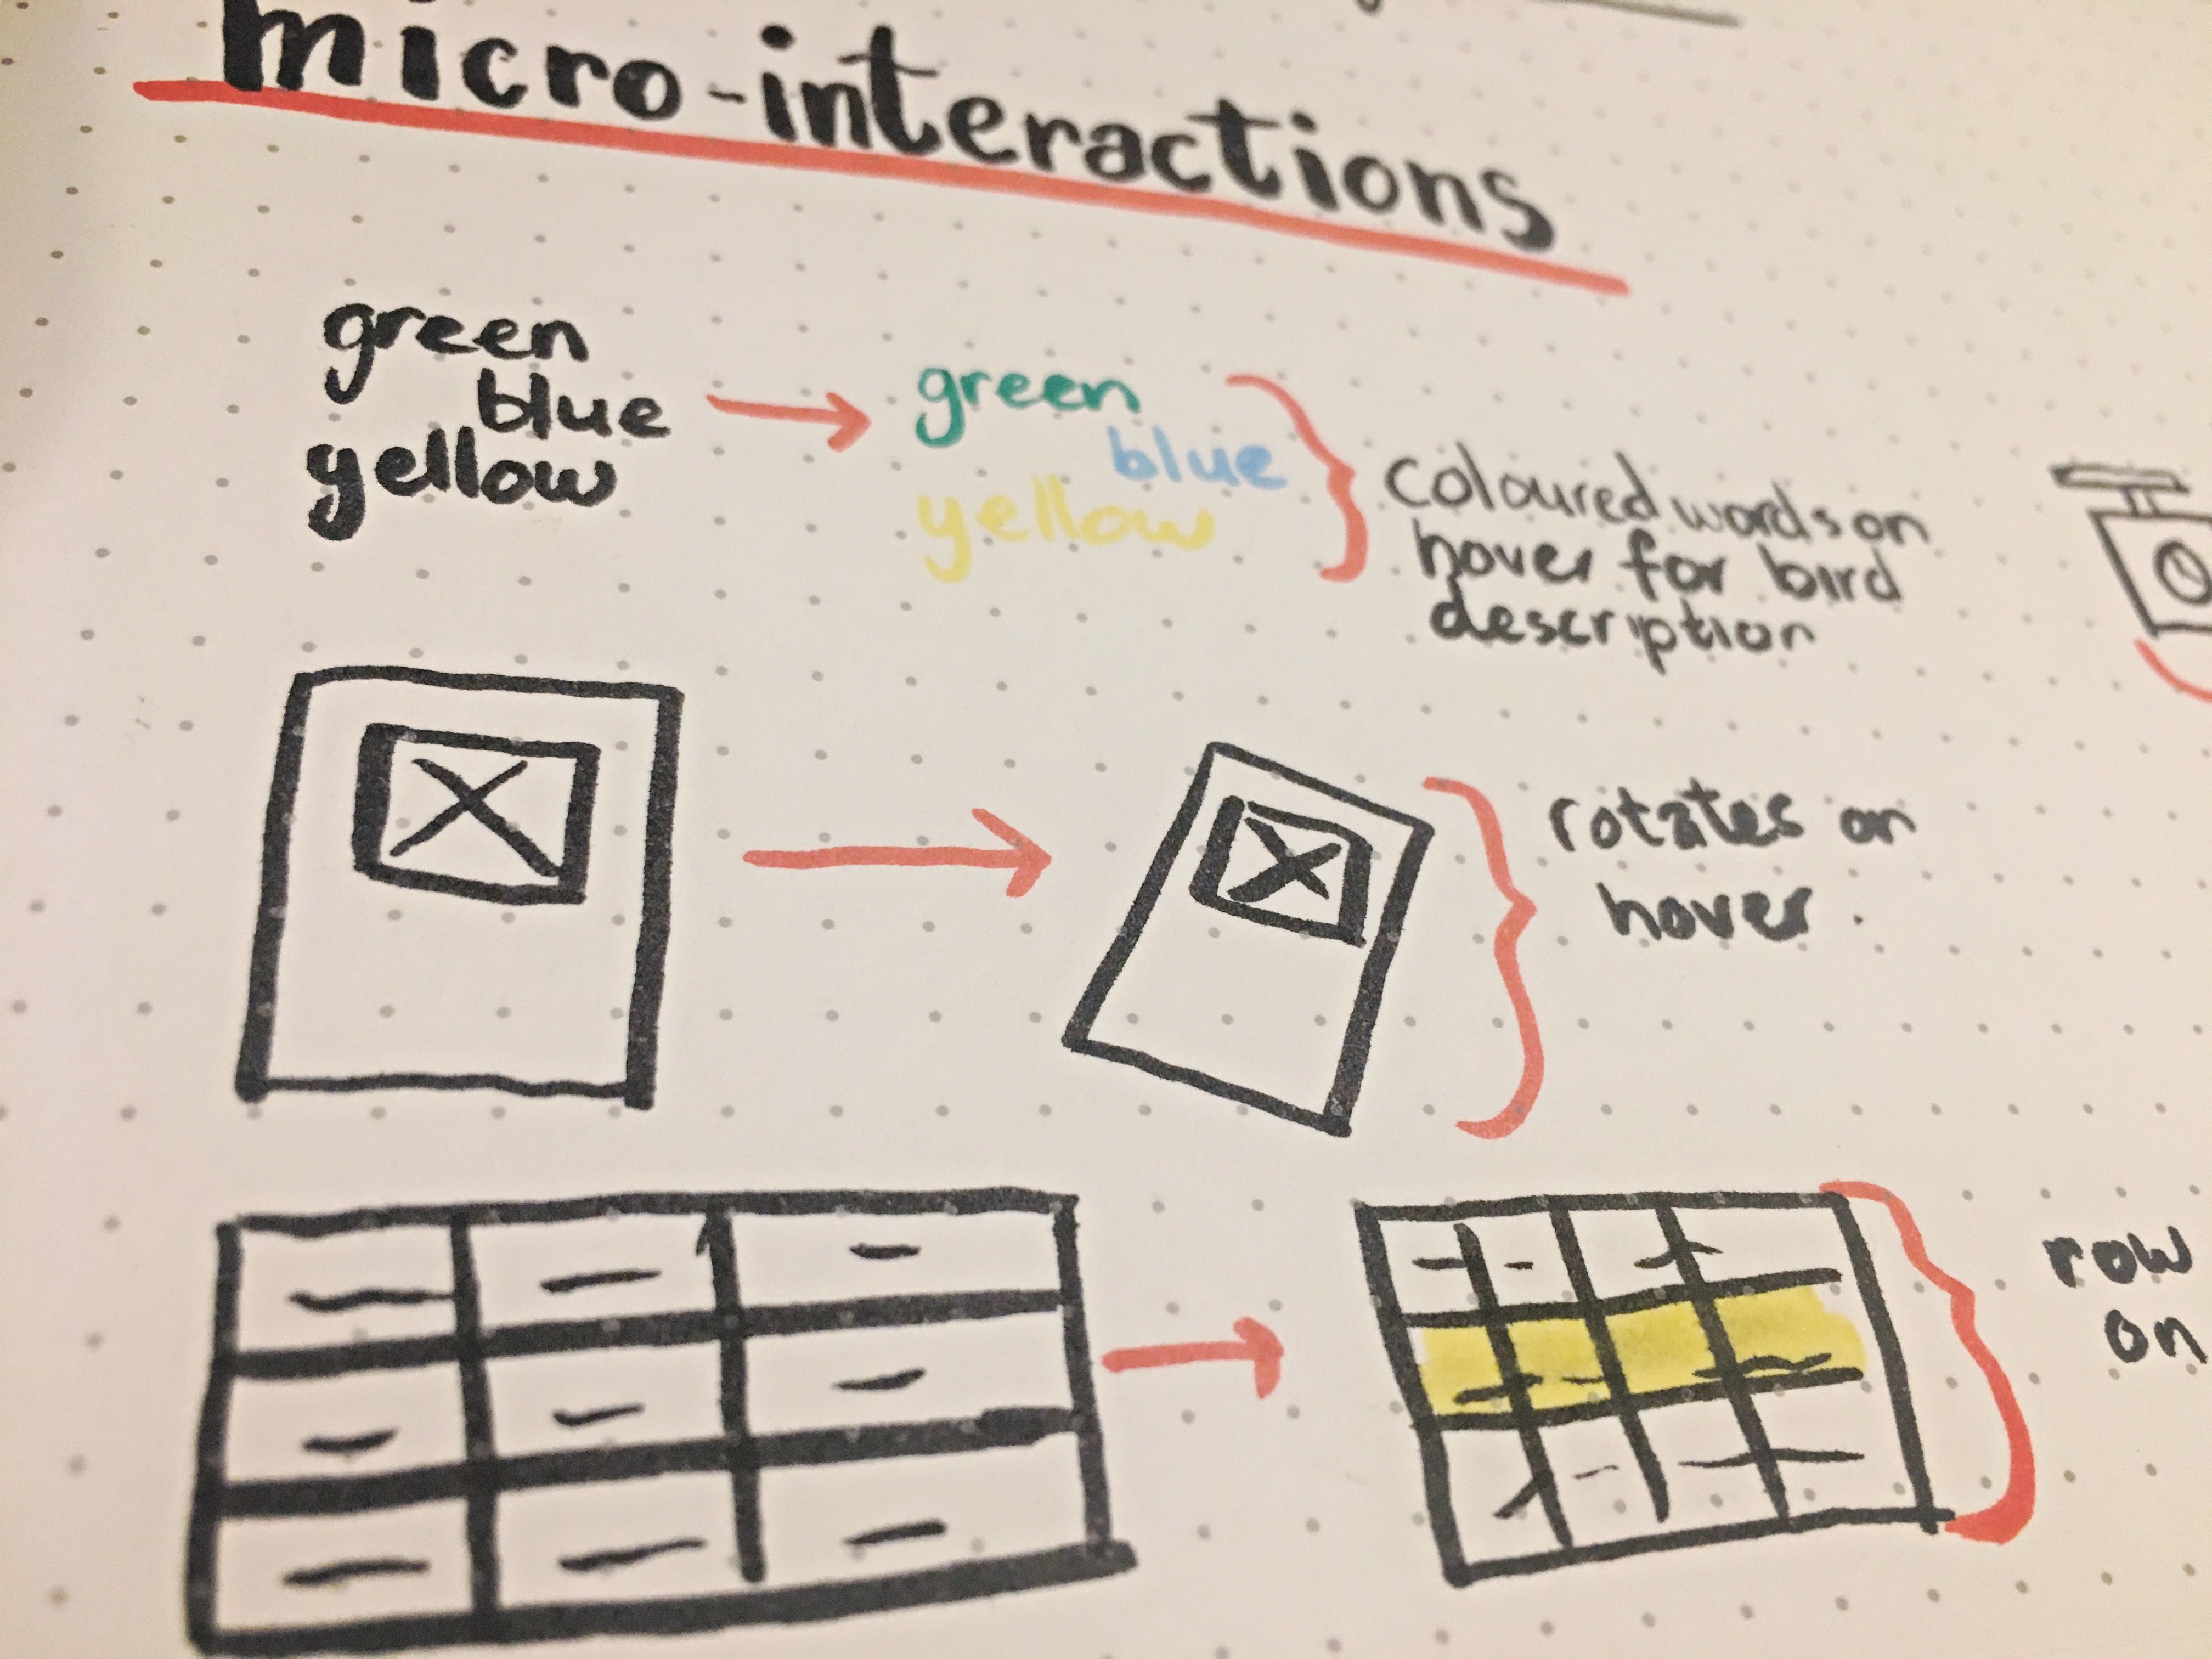 micro-interactions
green
blue
yellow
green
blue
yellow
coloured words on
hover for bird
description
rotates on
hover.
row
on